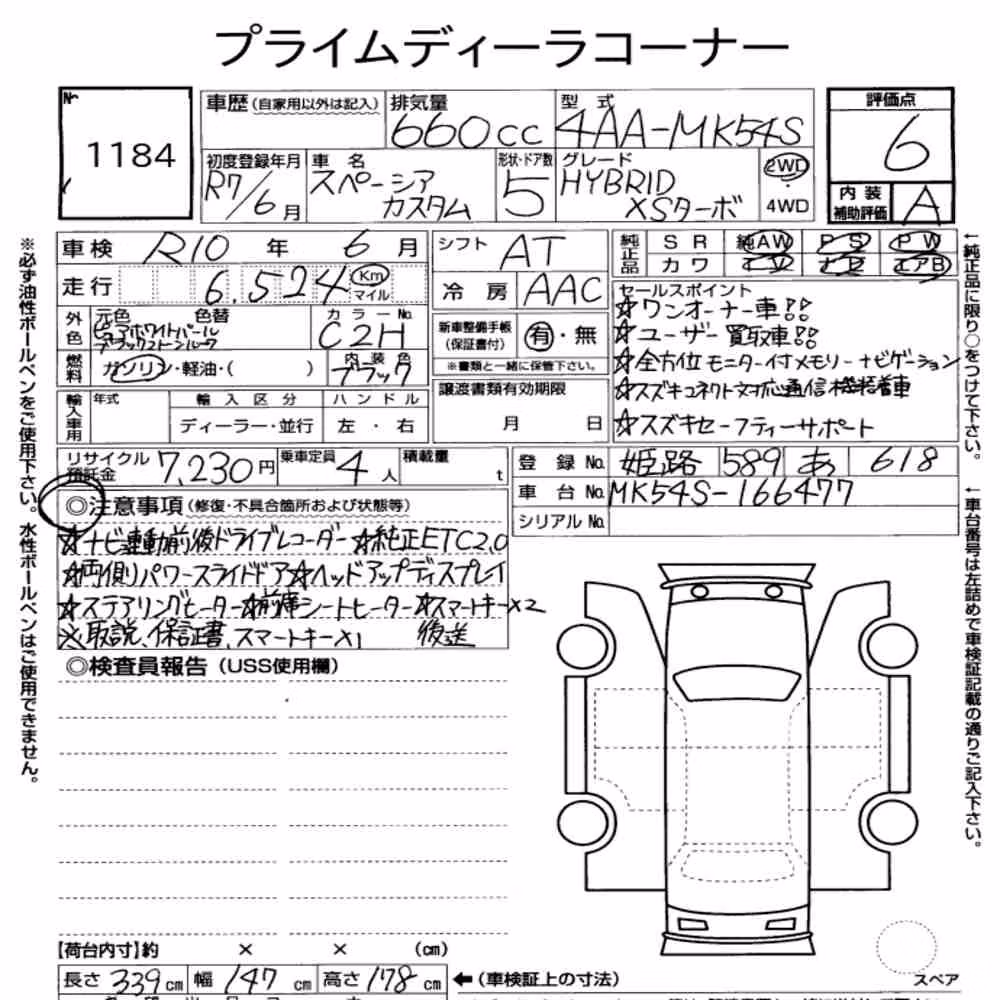 プライムディーラコーナー
№ 1184
車歴 (自家用以外は記入) 排気量 660cc 型式 4AA-MK54S 評価点 6
初度登録年月 R7/6月 車名 スペーシア カスタム 形状・ドア数 5 グレード HYBRID XSターボ 2WD・4WD 内装補助評価 A
車検 R10年 6月 シフト AT 純正品 SR 純AW PS PW
カワ ナビ エアB
走行 6,524 Km マイル 冷房 AAC
外色 元色 色替 ピュアホワイトパール カラーNo. C2H
燃料 ガソリン・軽油・( ) 内装色 ブラック
新車整備手帳 (保証書付) 有・無
※書類と一緒に保管下さい。
セールスポイント
☆ワンオーナー車!!
☆ユーザー買取車!!
☆全方位モニター付メモリーナビゲーション
☆スズキコネクト対応通信機搭載車
☆スズキセーフティーサポート
輸入車用 年式 輸入区分 ディーラー・並行 ハンドル 左・右
譲渡書類有効期限 月 日
リサイクル預託金 7,230円 乗車定員 4人 積載量 t
登録No. 姫路 589 あ 618
車台No. MK54S-166477
シリアルNo.
◎注意事項 (修復・不具合箇所および状態等)
☆ナビ連動前後ドライブレコーダー☆純正ETC2.0
☆両側パワースライドドア☆ヘッドアップディスプレイ
☆ステアリングヒーター☆前席シートヒーター☆スマートキー×2
※取説、保証書、スマートキー×1 後送
◎検査員報告 (USS使用欄)
【荷台内寸】約 × × (cm)
長さ 339cm 幅 147cm 高さ 178cm ←(車検証上の寸法)
スペア
※必ず油性ボールペンをご使用下さい。水性ボールペンはご使用できません。
←純正品に限り○をつけて下さい。
←車台番号は左詰めで車検証記載の通りご記入下さい。